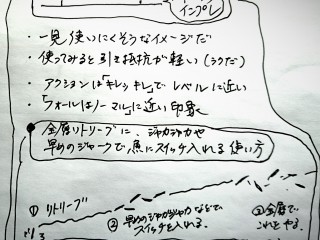 インプレ
・一見使いにくそうなイメージだ
・使ってみると引き抵抗が軽い(ラクだ)
・アクションは「キレッキレ」でレベルに近い
・「フォールはノーマル」に近い印象
金属リトリーブに、ジャカジャカや
早めのジャークで魚にスイッチ入れる使い方
① リトリーブ
② 早めのジャカジャカなどで
スイッチを入れる。
③ 全層で
これをやる。